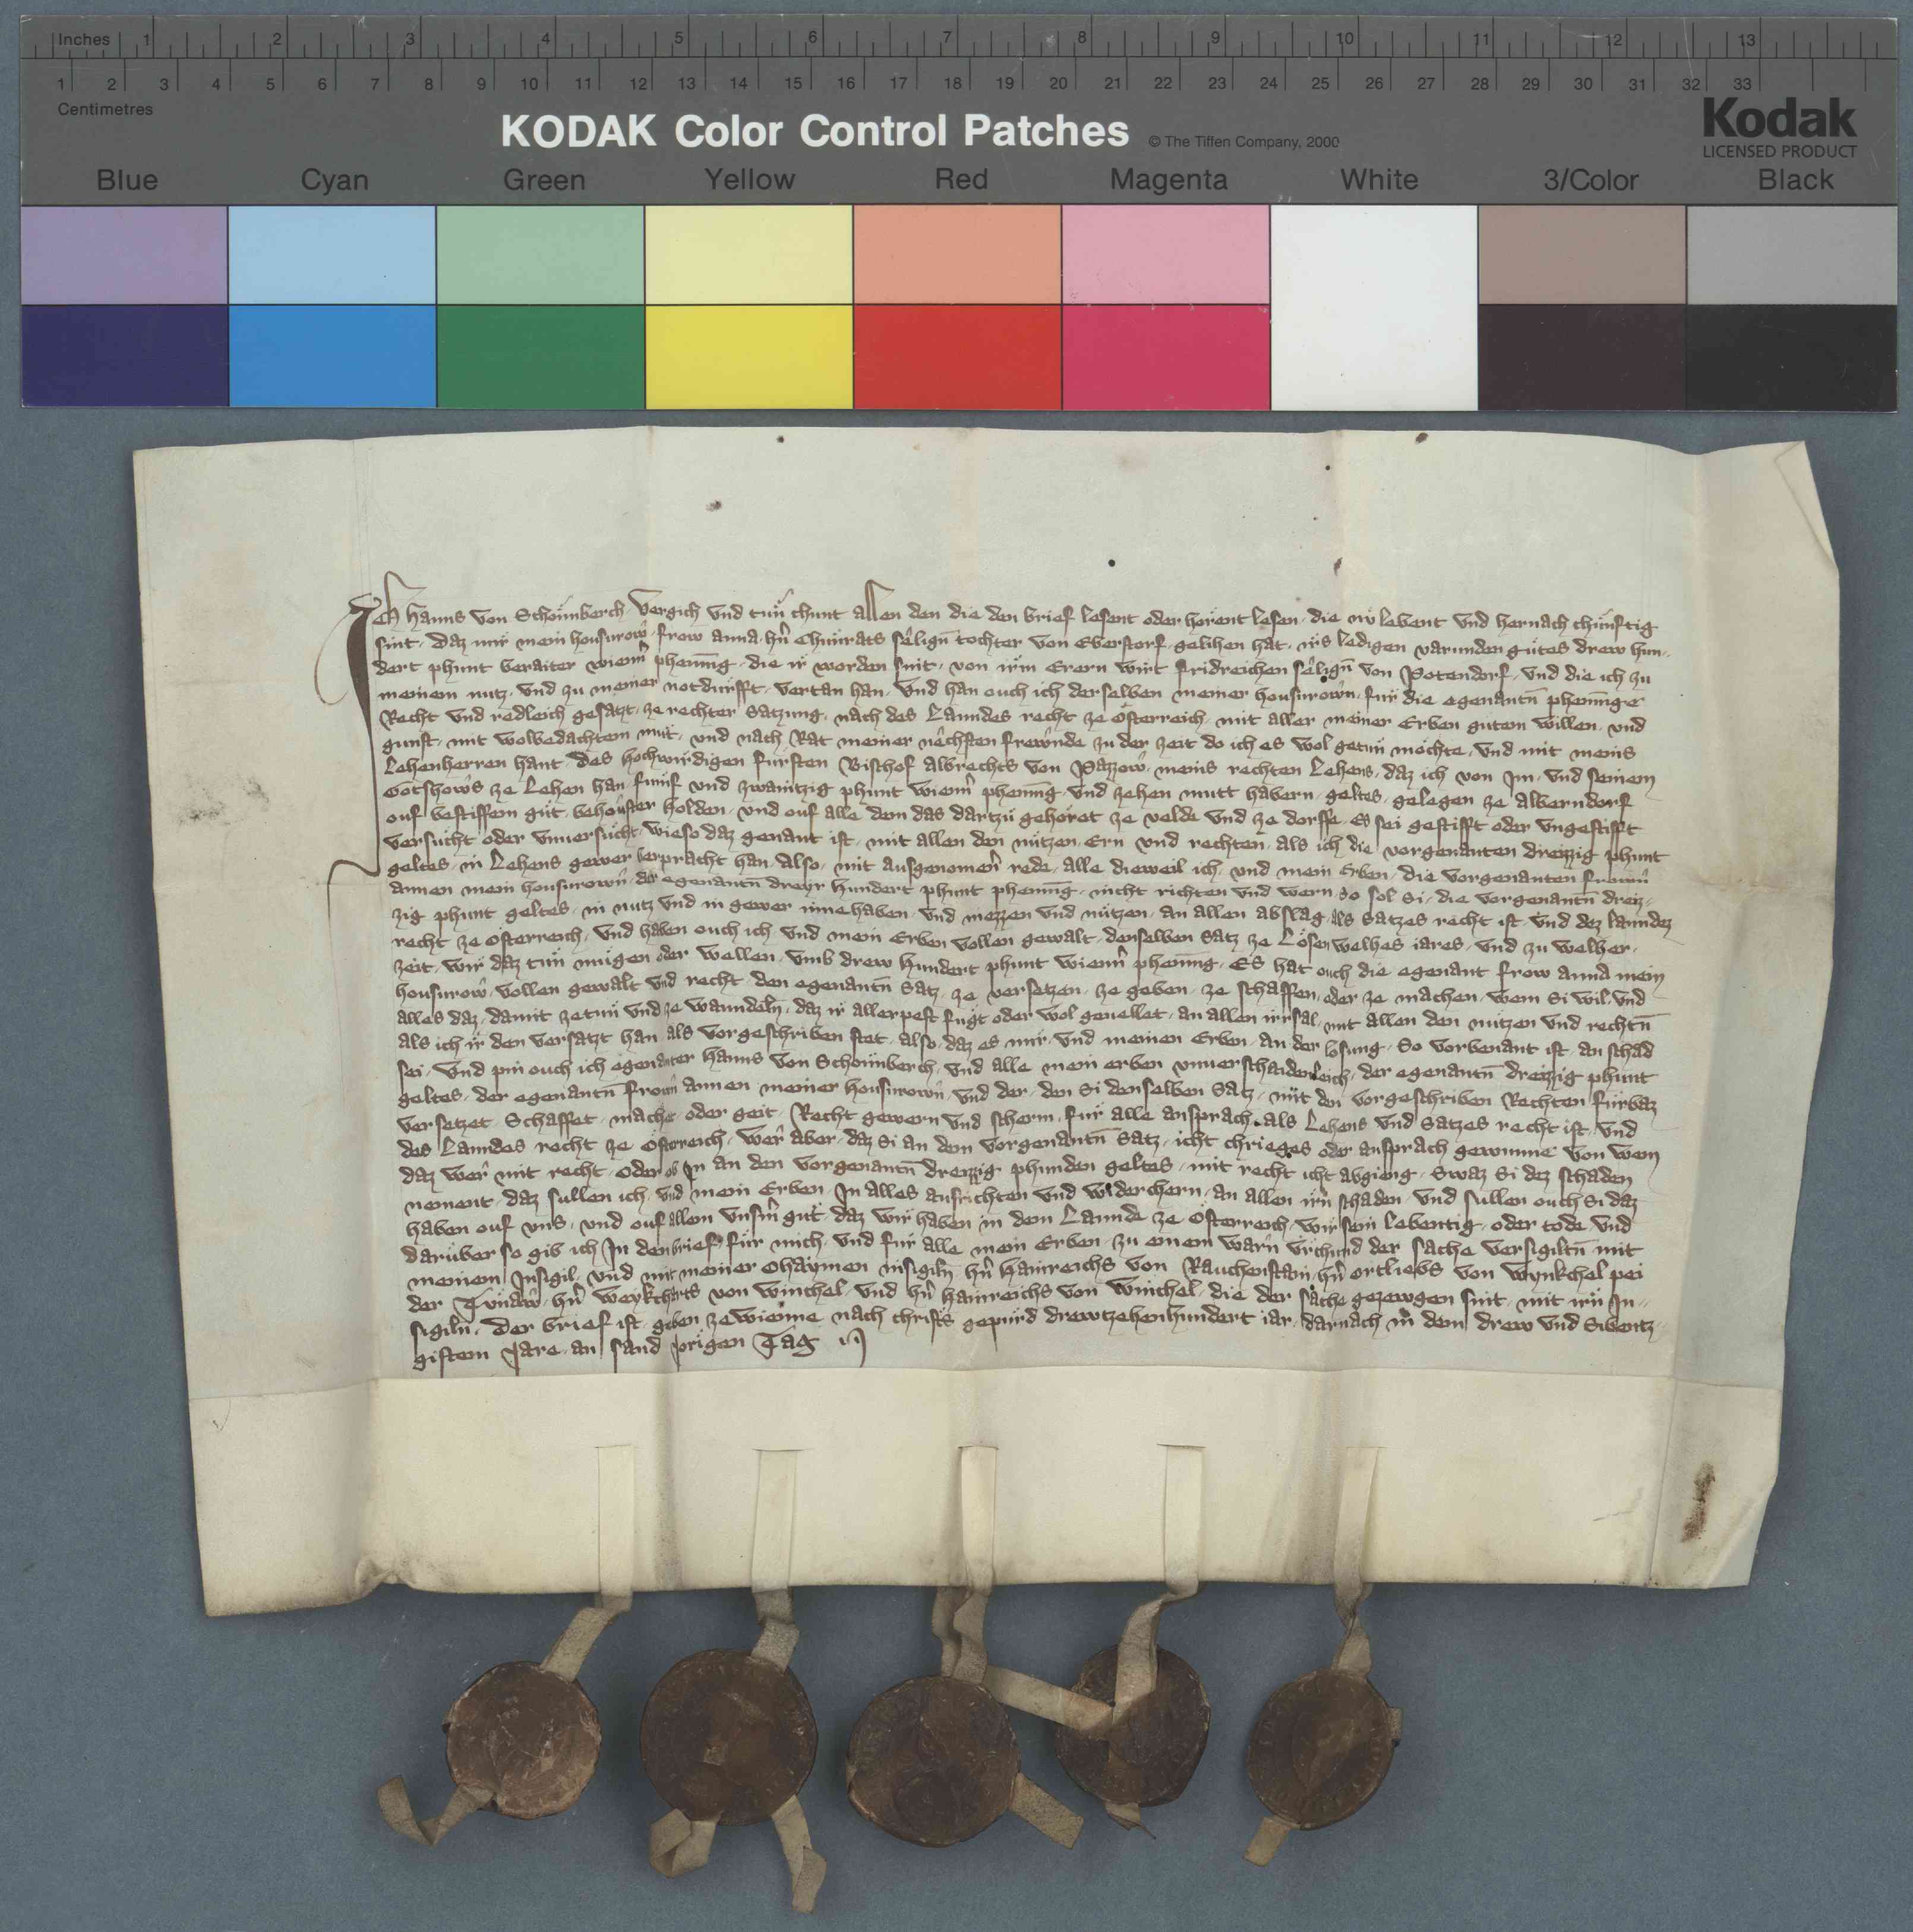 Inches 1 2 3 4 5 6 7 8 9 10 11 12 13
1 2 3 4 5 6 7 8 9 10 11 12 13 14 15 16 17 18 19 20 21 22 23 24 25 26 27 28 29 30 31 32 33
Centimetres
KODAK Color Control Patches © The Tiffen Company, 2000
Kodak
LICENSED PRODUCT
Blue Cyan Green Yellow Red Magenta White 3/Color Black
Ich Hanns von Schoͤnnberch vergich und tuͤn chunt allen den die den brief lesent oder hoͤrent lesen die nu lebent und hernach chuͤnftig
sint, daz mir mein housurow frow Anna hern Chuͤnrats seͤlign tochter von Eberstorf gelihen hat irs ledigen varunden guͤtes drew hun-
dert phunt beraiter wienn phenning, die ir worden sint von irm Erern wirt fridreichen seͤlign von Potendorf und die ich zu
meinem nutz und zu meiner notduͤrfft vertan han. Und han ouch ich derselben meiner housurown fuͤr die egenantn phenninge
Recht und redleich gesatzt ze rechter Satzung nach des Lanndes recht ze Oͤsterreich mit aller meiner Erben gutem willen und
gunst, mit wolbedachtem muͤt und nach Rat meiner neͤchsten frewnde zu der zeit do ich es wol getuͤn mochte, und mit meins
Lehenherren hant des hochwirdigen fuͤrsten Bischof Albrechts von Pazzow, meins rechten Lehens, daz ich von Im und seinem
Gotshows ze Lehen han, fuͤnf und zwaintzig phunt wienn phenning und zehen mutt habern geltes gelegen ze Alberndorf
ouf bestifftem guͤt behouster holden und ouf alle dem das dartzuͤ gehoͤret ze velde und ze dorffe, es sei gestifft oder ungestifft
versucht oder unversucht, wieso daz genant ist, mit allen den nuͤtzen Ern und rechten als ich die vorgenanten dreizzig phunt
geltes in Lehens gewer herpracht han. Also mit ausgenomenr rede, alle dieweil ich und mein Erben die vorgenanten frown
Annen mein housurown der egenantn dreyr hundert phunt phenning nicht richten und wern, so sol si die vorgenantn dreiz-
zig phunt geltes in nutz und in gewer innehaben und niezzen und nuͤtzen an allen abslag als Satzes recht ist und dez lanndez
recht ze Oͤsterreich. Und haben ouch ich und mein Erben vollen gewalt denselben Satz ze Loͤsen welhes iares und zu welher
zeit wir daz tuͤn muͤgen oder wellen umb drew hundert phunt wienn phenning. Es hat ouch die egenant frow Anna mein
housurow vollen gewalt und recht den egenantn Satz ze versetzen ze geben ze schaffen oder ze machen wem si wil und
alles daz damit zetuͤn und ze wanndeln daz ir allerpest fuͤgt oder wol gevellet an allen irrsal mit allen den nuͤtzen und rechtn
als ich ir den versatzt han als vorgeschriben stet, also daz es mir und meinen Erben an der losung so vorbenant ist an schad
sei. Und pin ouch ich egenanter Hanns von Schoͤnnberch und alle mein erben unverschaidenleich der egenantn dreizzig phunt
geltes der egenantn frown Annen meiner housurown und der den si denselben Satz mit den vorgeschriben Rechten fuͤrbaz
versetzet Schaffet machet oder geit Recht gewern und scherm fuͤr alle ansprach als Lehens und Satzes recht ist und
des Lanndes recht ze Oͤsterreich. Wer aber daz si an dem vorgenantn Satz icht chrieges oder ansprach gewunne von wem
daz wer mit recht oder ob In an den vorgenantn dreizzig phunden geltes mit recht icht abgieng, Swaz si dez schaden
nement, daz sullen ich und mein Erben In alles ausrichten und widerchern an allen irn schaden. Und sullen ouch si daz
haben ouf uns und ouf allem unserm guͤt daz wir haben in dem Lannde ze Oͤsterreich wir sein lebentig oder tode. Und
daruͤber so gib ich In den brief fuͤr mich und fuͤr alle mein Erben zu einem warn Urchund der sache versigiltn mit
meinem Insigil und mit meiner Ohaymen insigiln hern Hainreichs von Rauchenstain hern Ortliebs von Wynkchel pei
der Tunaw hern Weykcharts von Winchel und hern Hainreichs von Winchel, die der sache gezewgen sint mit irn In-
sigiln. Der brief ist geben ze Wienne nach christs gepuͤrd drewtzehenhundert iar darnach in dem drew und Sibentz-
gistem Jare an sand Joͤrigen Tag